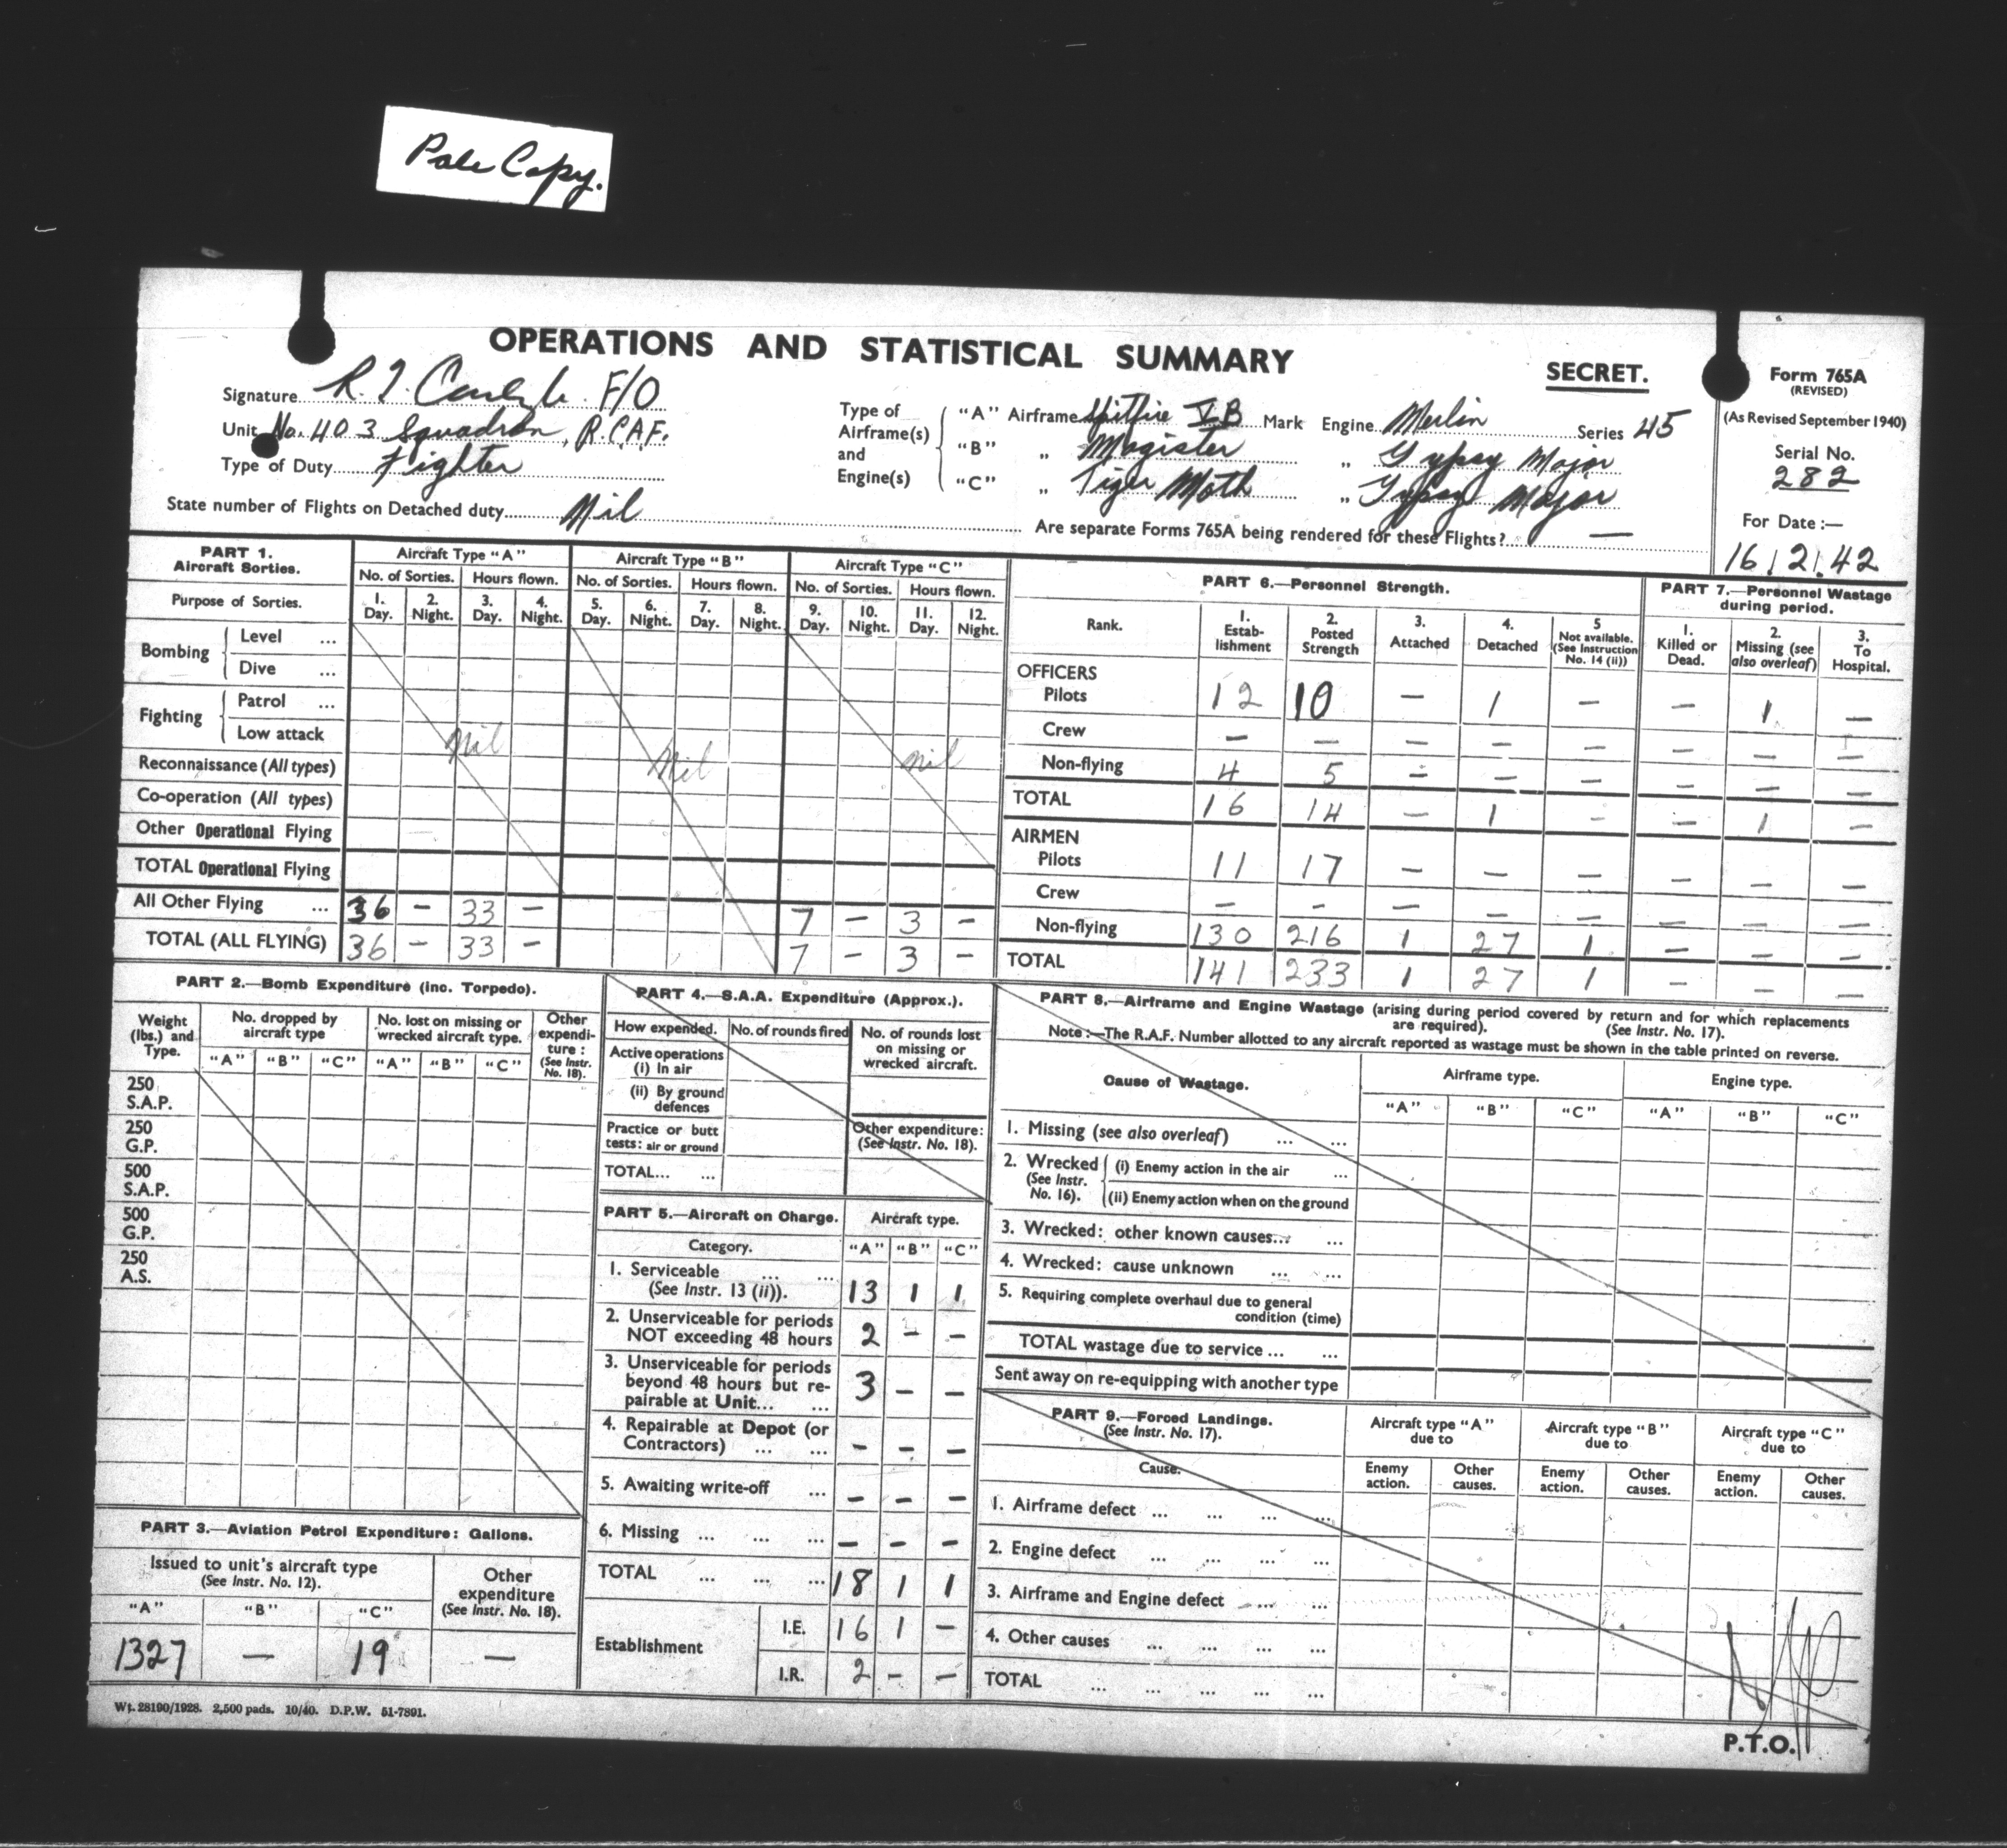 Pale Copy.
OPERATIONS AND STATISTICAL SUMMARY
SECRET.
Form 765A
(REVISED)
(As Revised September 1940)
Serial No.
282
For Date :—
16.2.42
Signature R. I. Carlyle F/O
Unit No. 403 Squadron, R.C.A.F.
Type of Duty Fighter
Type of Airframe(s) and Engine(s)
"A" Airframe Spitfire VB Mark Engine Merlin Series 45
"B" „ Magister „ Gypsy Major
"C" „ Tiger Moth „ Gypsy Major
State number of Flights on Detached duty Nil
Are separate Forms 765A being rendered for these Flights? —
PART 1.
Aircraft Sorties.
Aircraft Type "A" Aircraft Type "B" Aircraft Type "C"
No. of Sorties. Hours flown. No. of Sorties. Hours flown. No. of Sorties. Hours flown.
Purpose of Sorties.
1. Day. 2. Night. 3. Day. 4. Night. 5. Day. 6. Night. 7. Day. 8. Night. 9. Day. 10. Night. 11. Day. 12. Night.
Bombing
Level ...
Dive ...
Fighting
Patrol ...
Low attack
Nil Nil Nil
Reconnaissance (All types)
Co-operation (All types)
Other Operational Flying
TOTAL Operational Flying
All Other Flying ... 36 — 33 — 7 — 3 —
TOTAL (ALL FLYING) 36 — 33 — 7 — 3 —
PART 6.—Personnel Strength.
Rank. 1. Estab-lishment 2. Posted Strength 3. Attached 4. Detached 5 Not available. (See Instruction No. 14 (ii))
PART 7.—Personnel Wastage during period.
1. Killed or Dead. 2. Missing (see also overleaf) 3. To Hospital.
OFFICERS
Pilots 12 10 — 1 — — 1 —
Crew — — — — — — — —
Non-flying 4 5 — — — — — —
TOTAL 16 14 — 1 — — 1 —
AIRMEN
Pilots 11 17 — — — — — —
Crew — — — — — — — —
Non-flying 130 216 1 27 1 — — —
TOTAL 141 233 1 27 1 — — —
PART 2.—Bomb Expenditure (inc. Torpedo).
Weight (lbs.) and Type.
No. dropped by aircraft type
No. lost on missing or wrecked aircraft type.
Other expendi-ture : (See Instr. No. 18).
"A" "B" "C" "A" "B" "C"
250 S.A.P.
250 G.P.
500 S.A.P.
500 G.P.
250 A.S.
PART 3.—Aviation Petrol Expenditure: Gallons.
Issued to unit's aircraft type
(See Instr. No. 12).
Other expenditure
(See Instr. No. 18).
"A" "B" "C"
1327 — 19 —
PART 4.—S.A.A. Expenditure (Approx.).
How expended. No. of rounds fired No. of rounds lost on missing or wrecked aircraft.
Active operations
(i) In air
(ii) By ground defences
Practice or butt tests: air or ground
Other expenditure:
(See Instr. No. 18).
TOTAL... ...
PART 5.—Aircraft on Charge. Aircraft type.
Category. "A" "B" "C"
1. Serviceable ... ...
(See Instr. 13 (ii)). 13 1 1
2. Unserviceable for periods
NOT exceeding 48 hours 2 — —
3. Unserviceable for periods
beyond 48 hours but re-
pairable at Unit... ... 3 — —
4. Repairable at Depot (or
Contractors) ... ... — — —
5. Awaiting write-off ... — — —
6. Missing ... ... ... — — —
TOTAL ... ... ... 18 1 1
Establishment
I.E. 16 1 —
I.R. 2 — —
PART 8.—Airframe and Engine Wastage (arising during period covered by return and for which replacements
are required). (See Instr. No. 17).
Note :—The R.A.F. Number allotted to any aircraft reported as wastage must be shown in the table printed on reverse.
Cause of Wastage. Airframe type. Engine type.
"A" "B" "C" "A" "B" "C"
1. Missing (see also overleaf) ... ...
2. Wrecked (See Instr. No. 16).
(i) Enemy action in the air ...
(ii) Enemy action when on the ground
3. Wrecked: other known causes... ...
4. Wrecked: cause unknown ... ...
5. Requiring complete overhaul due to general
condition (time)
TOTAL wastage due to service ... ...
Sent away on re-equipping with another type
PART 9.—Forced Landings.
(See Instr. No. 17).
Aircraft type "A" due to Aircraft type "B" due to Aircraft type "C" due to
Cause.
Enemy action. Other causes. Enemy action. Other causes. Enemy action. Other causes.
1. Airframe defect ... ... ... ...
2. Engine defect ... ... ... ...
3. Airframe and Engine defect ... ...
4. Other causes ... ... ... ...
TOTAL ... ... ... ... ...
Wt. 28190/1928. 2,500 pads. 10/40. D.P.W. 51-7891.
P.T.O.